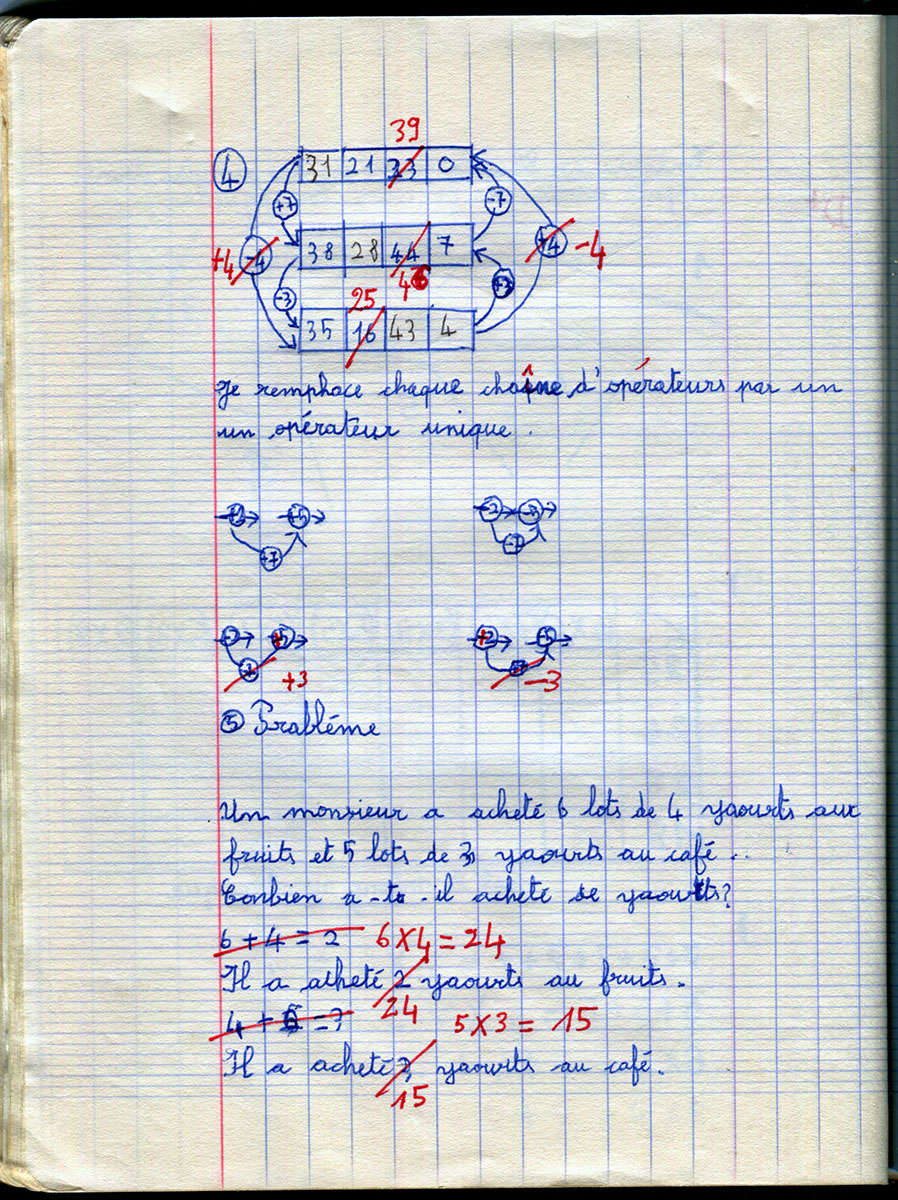 39
4 31 21 33 0
+7 -7
+4 -4 38 28 44 7 +4 -4
46
-3 +3
25
35 16 43 4
Je remplace chaque chaîne d'opérateurs par un
un opérateur unique.
-2 -7
+3
-3
5 Prabléme
Un monsieur a acheté 6 lots de 4 yaourts aux
fruits et 5 lots de 3 yaourts au café..
Conbien a-ta-il acheté de yaourts?
6 + 4 = 2 6 X 4 = 24
Il a acheté 2 yaourts au fruits.
24
4 + 5 = 7 5 X 3 = 15
Il a acheté yaourts au café.
15